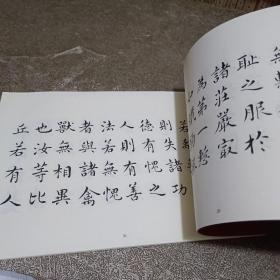 無
恥之服於
諸莊嚴冣
為第一慙
若
則失諸功
德有愧之
人則有善
法若無愧
者與諸禽
獸無相異
也汝等比
丘若有人